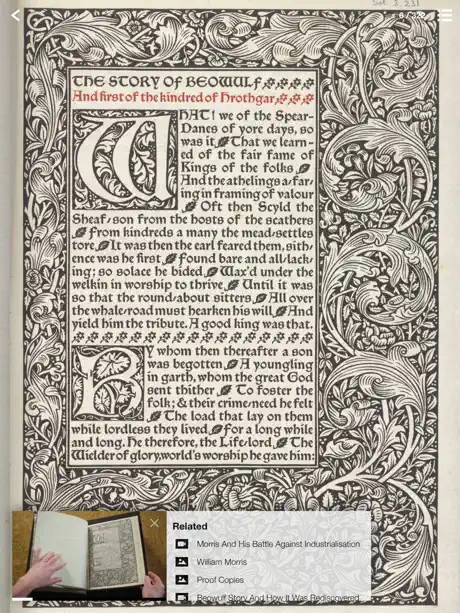 THE STORY OF BEOWULF
And first of the kindred of Hrothgar
WHAT! we of the Spear-
Danes of yore days, so
was it That we learn-
ed of the fair fame of
Kings of the folks
And the athelings a/far/
ing in framing of valour
Oft then Scyld the
Sheaf/son from the hosts of the scathers
From kindreds a many the mead/settles
tore, It was then the earl feared them, sith/
ence was he first Found bare and all/lack/
ing; so solace he bided Wax'd under the
welkin in worship to thrive Until it was
so that the round/about sitters All over
the whale/road must hearken his will And
yield him the tribute. A good king was that.
By whom then thereafter a son
was begotten A youngling
in garth, whom the great God
sent thither To foster the
folk; & their crime/need he felt
The load that lay on them
while lordless they lived For a long while
and long. He therefore, the Life/lord The
Wielder of glory, world's worship he gave him:
Related
Morris And His Battle Against Industrialisation
William Morris
Proof Copies
Beowulf Story And How It Was Rediscovered